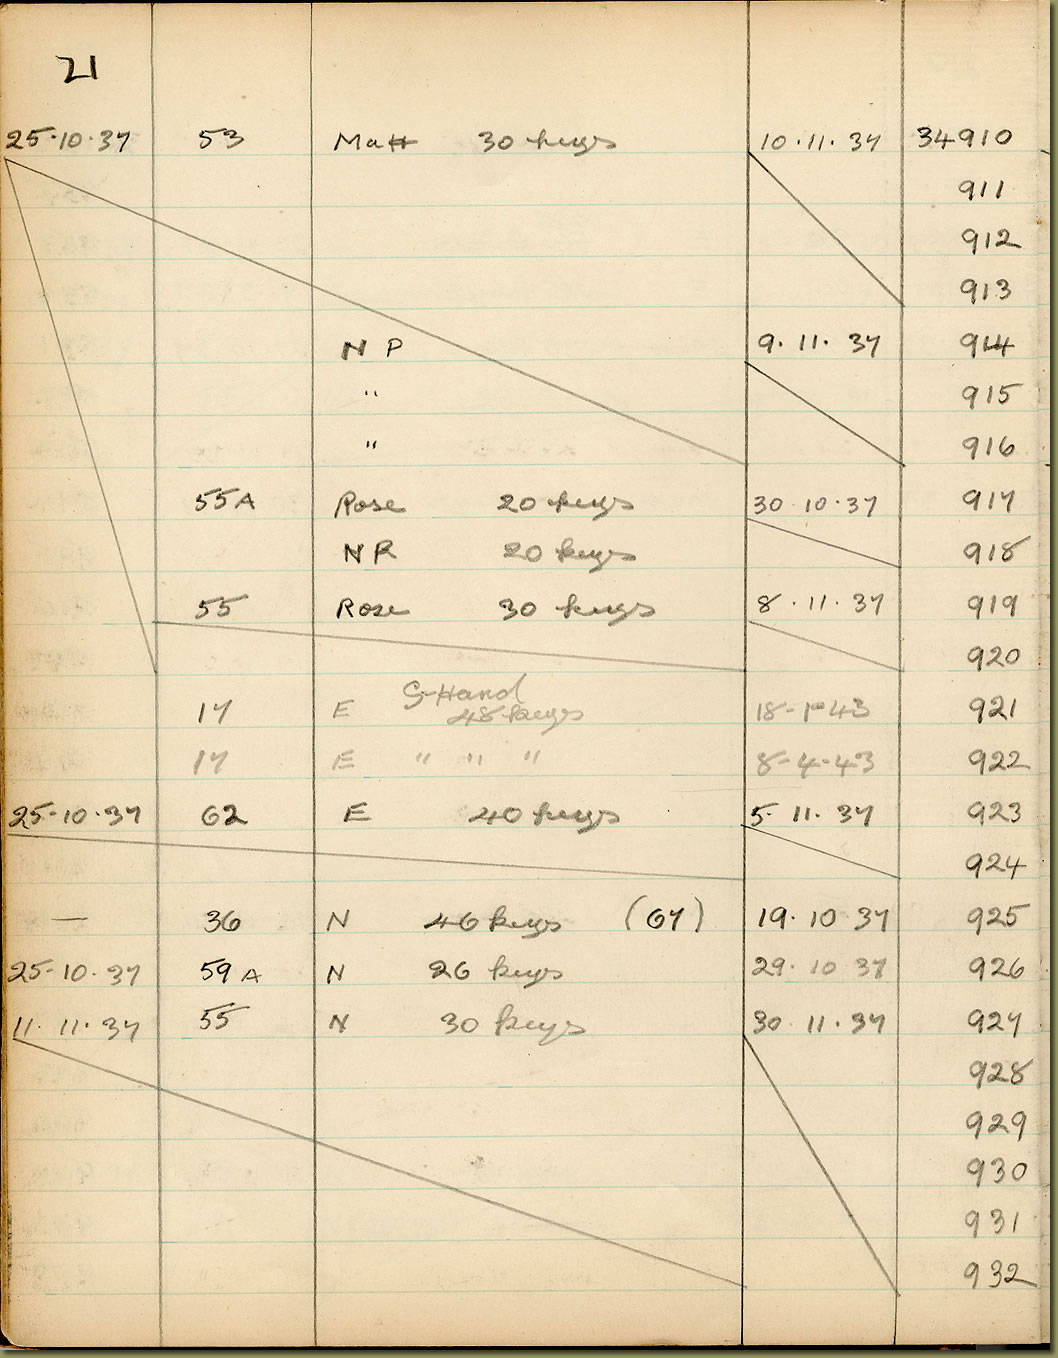 21
25·10·37 53 Matt 30 keys 10·11·37 34910
911
912
913
N P 9·11·37 914
" 915
" 916
55A Rose 20 keys 30 10·37 917
NR 20 keys 918
55 Rose 30 keys 8·11·37 919
920
S-Hand
17 E 48 keys 18-1-43 921
17 E " " " 8-4-43 922
25-10·37 62 E 40 keys 5·11·37 923
924
— 36 N 46 keys (67) 19·10 37 925
25-10·37 59A N 26 keys 29·10 37 926
11·11·37 55 N 30 keys 30 11·37 927
928
929
930
931
932